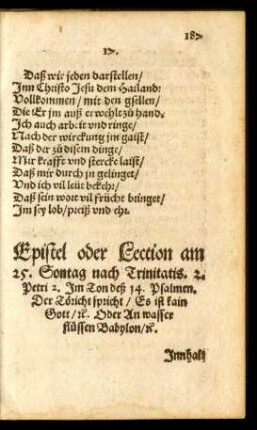 187
17.
Daß wir jeden darstellen/
Inn Christo Jesu dem Hailand:
Vollkommen/ mit den gsellen/
Die Er jm auß erwehlt zů hand.
Ich auch arbeit vnd ringe/
Nach der wirckung jm gaist/
Daß der zů disem dinge/
Mir krafft vnd stercke laist/
Daß mir durch jn gelinget/
Vnd ich vil leüt bekehr/
Daß sein wort vil frücht bringet/
Im sey lob/ preiß vnd ehr.
Epistel oder Lection am
25. Sontag nach Trinitatis. 2.
Petri 2. Im Ton deß 14. Psalmen.
Der Töricht spricht/ Es ist kain
Gott/ ꝛc. Oder An wasser
flüssen Babylon/ ꝛc.
Innhalt